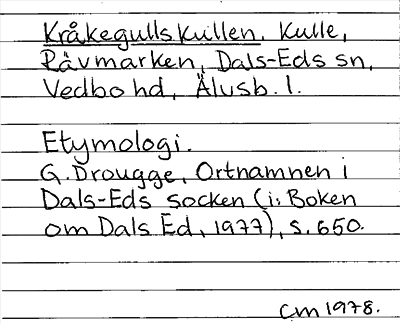 Kråkegullskullen, Kulle,
Rävmarken, Dals-Eds sn,
Vedbo hd, Älvsb. l.
Etymologi.
G. Drougge, Ortnamnen i
Dals-Eds socken (i: Boken
om Dals Ed, 1977), s. 650.
CM 1978.